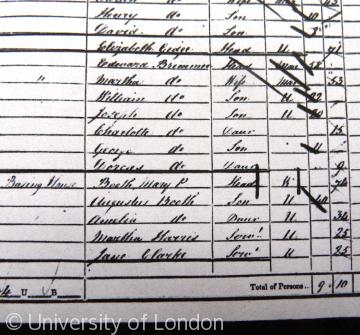 Henry do Son
David do Son
Elizabeth Gedge Head U 71
Edward Brimmer Head Mar
Martha do Wife Mar 53
William do Son U
Joseph do Son U 20
Charlotte do Daur 15
George do Son 11
Dorcas do Daur 9
House Booth Mary P. Head W 74
Augustus Booth Son U 40
Amelia do Daur U 34
Martha Harris Servt U 25
Jane Clarke Servt U 25
4 U B Total of Persons 9 10
© University of London